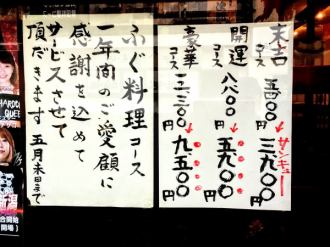 末吉コース 五八〇〇円 → 三九〇〇円
サーンキュー
開運コース 八八〇〇円 → 五九〇〇円
豪華コース 一二三〇〇円 → 九五〇〇円
ふぐ料理コース
一年間のご愛顧に
感謝を込めて
サービスさせて
頂だきます 五月末日まで
HARDCO
QUEE
新潟